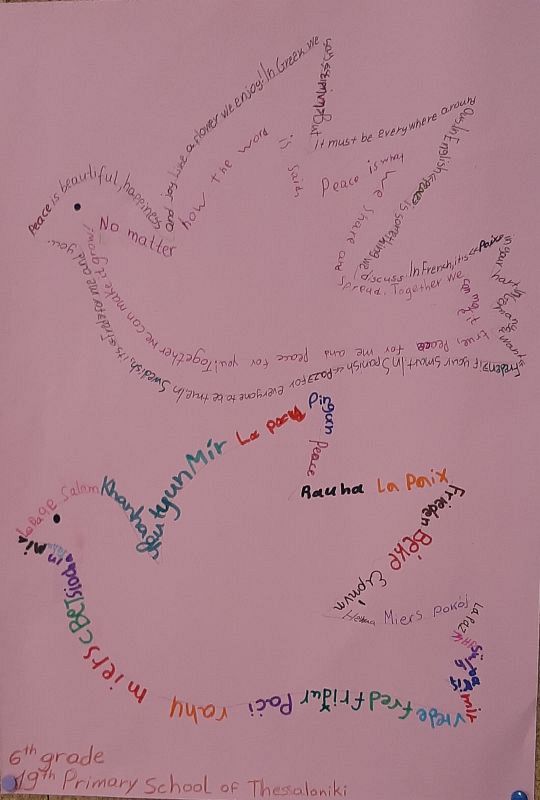 Peace is beautiful, happiness and joy Like a flower we enjoy! In Greek we say <<Ειρήνη>> But it must be everywhere around Us. In English <<peace>> is something we discuss. In French, it's <<Paix>> in your heart. In
<<Frieden>> if your smart. In Spanish <<Paz>> for everyone to be true. In Swedish, its <<Frid>> for me and you.
No matter how the word is said, Peace is what we share and spread. Together we can make it true, Peace for me and peace for you! Together we can make it grow!
La Pace Salam Khanhaghut'yun Mir La pace Pingun Peace
Rauha La Paix Frieden Béke Ειρήνη
Miers pokój La Paz
mir
Vrede fred Friður Pači rahu miers CBET Síocháin
6th grade
19th Primary School of Thessaloniki